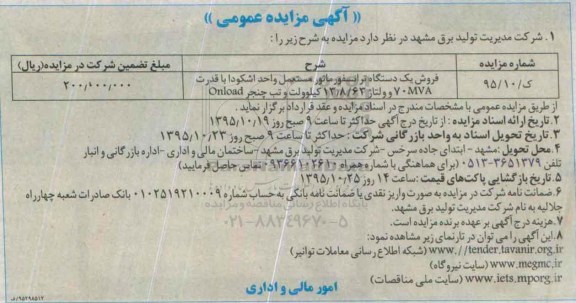 « آگهی مزایده عمومی »
۱. شرکت مدیریت تولید برق مشهد در نظر دارد مزایده به شرح زیر را:
شماره مزایده شرح مبلغ تضمین شرکت در مزایده(ریال)
ک/۹۵/۱۰ فروش یک دستگاه ترانسفورماتور مستعمل واحد اشکودا با قدرت ۲۰۰٫۰۰۰٫۰۰۰
۷۰MVA و ولتاژ ۱۳/۸/۶۳ کیلوولت و تپ چنجر Onload
از طریق مزایده عمومی با مشخصات مندرج در اسناد مزایده و عقد قرارداد برگزار نماید.
۲. تاریخ ارائه اسناد مزایده : از تاریخ درج آگهی حداکثر تا ساعت ۹ صبح روز ۱۳۹۵/۱۰/۱۹
۳. تاریخ تحویل اسناد به واحد بازرگانی شرکت : حداکثر تا ساعت ۹ صبح روز ۱۳۹۵/۱۰/۲۳
۴. محل تحویل :مشهد - ابتدای جاده سرخس -شرکت مدیریت تولید برق مشهد-ساختمان مالی و اداری -اداره بازرگانی و انبار
تلفن ۳۶۵۱۳۷۹-۰۵۱۳ (برای هماهنگی با شماره همراه ۰۹۳۶۶۱۰۲۶۱۰ تماس حاصل فرمایید)
۵. تاریخ بازگشایی پاکت‌های قیمت :ساعت ۱۴ روز ۱۳۹۵/۱۰/۲۵
۶. ضمانت نامه شرکت در مزایده به صورت واریز نقدی یا ضمانت نامه بانکی به حساب شماره ۰۱۰۲۵۱۹۲۱۰۰۰۹ بانک صادرات شعبه چهارراه
جلالیه به نام شرکت مدیریت تولید برق مشهد.
۷. هزینه درج آگهی بر عهده برنده مزایده است.
۸. این آگهی را می توان در تارنمای زیر مشاهده نمود:
www.//tender.tavanir.org.ir (شبکه اطلاع رسانی معاملات توانیر)
www.megmc.ir (سایت نیروگاه)
www.iets.mporg.ir (سایت ملی مناقصات)
امور مالی و اداری
پایگاه اطلاع رسانی مناقصه و مزایده
۰۲۱-۸۸۳۴۹۶۷۰-۵